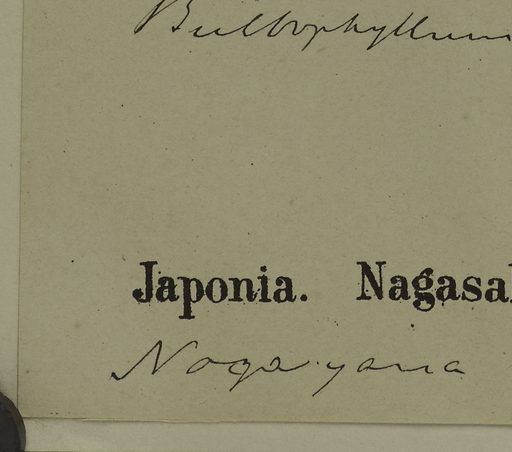 Bulbophyllum
Japonia. Nagasa
Nogayama